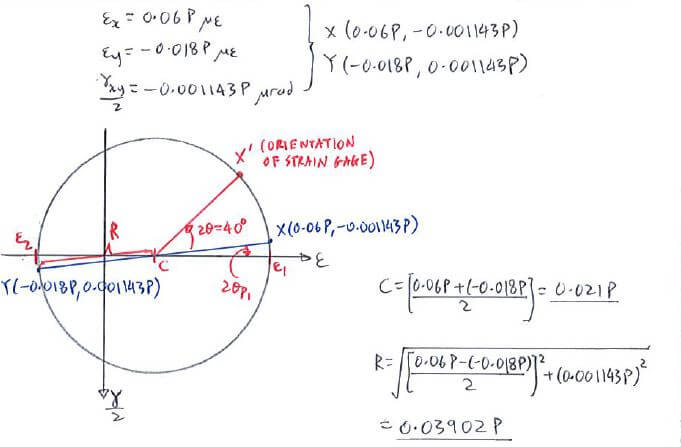 εx = 0.06P με
εy = -0.018P με
γxy/2 = -0.001143P μrad
X (0.06P, -0.001143P)
Y (-0.018P, 0.001143P)
X' (ORIENTATION
OF STRAIN GAGE)
ε2
R
2θ=40°
X(0.06P,-0.001143P)
C
ε1
ε
Y(-0.018P,0.001143P)
2θP1
γ/2
C = [0.06P+(-0.018P)/2] = 0.021P
R = √([0.06P-(-0.018P)/2]²+(0.001143P)²)
= 0.03902P